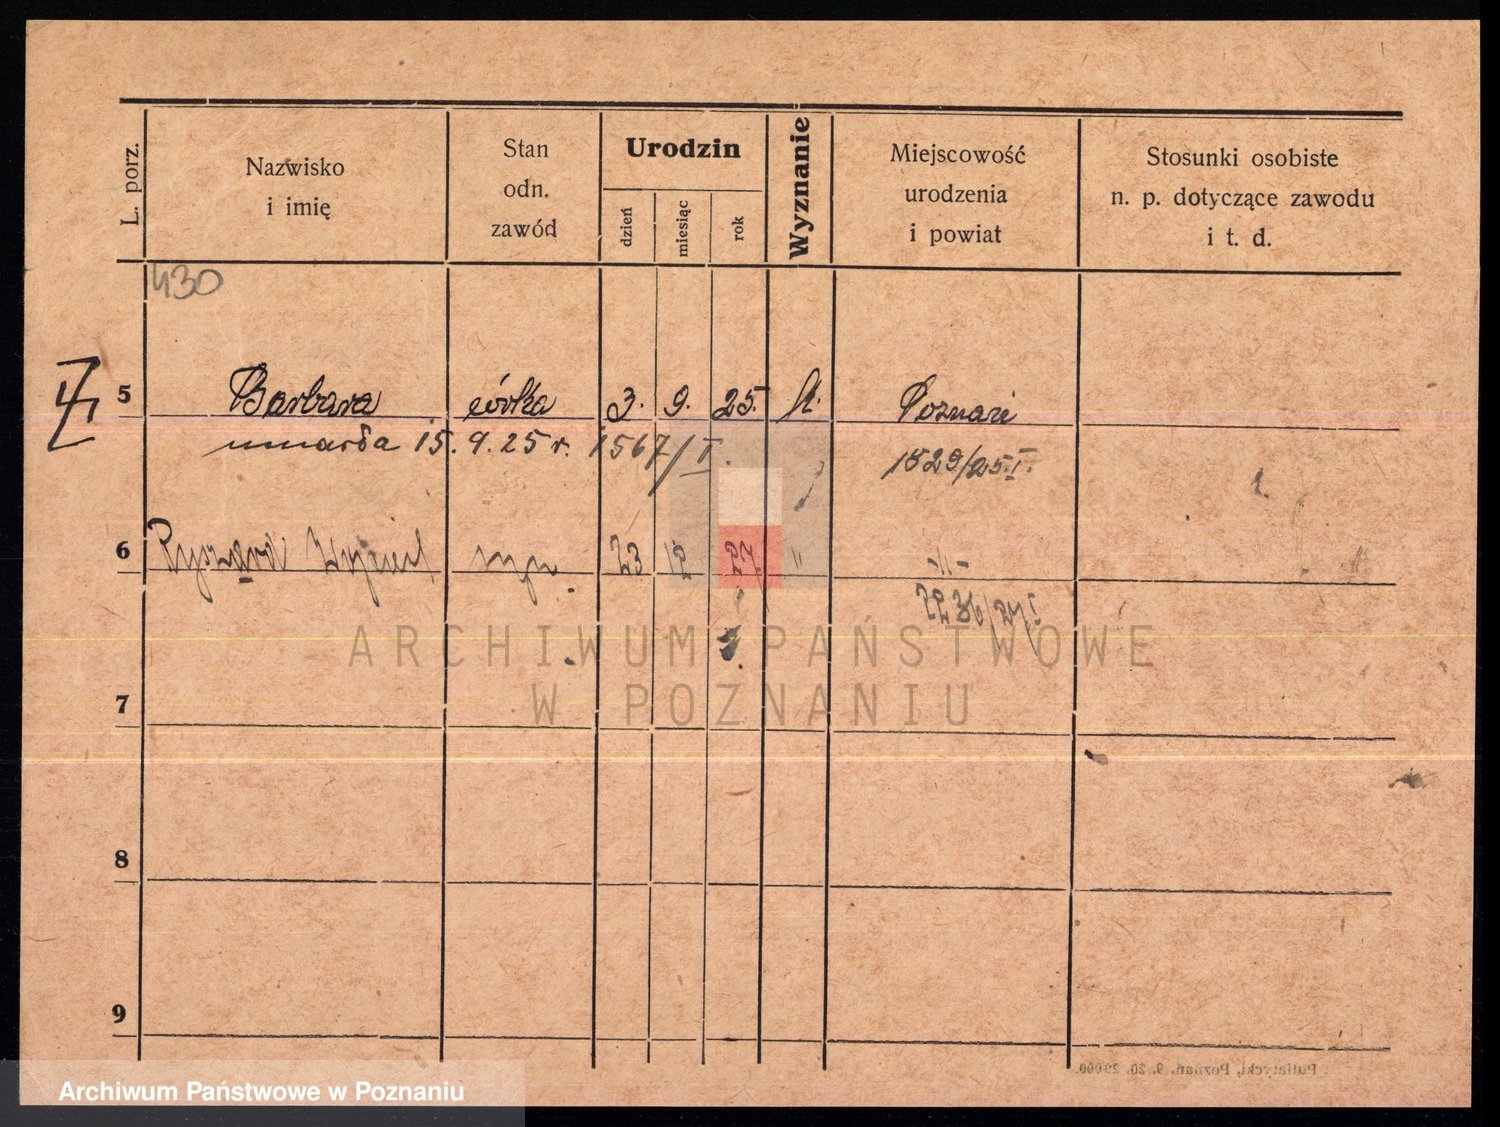 L. porz.
Nazwisko
i imię
Stan
odn.
zawód
Urodzin
dzień
miesiąc
rok
Wyznanie
Miejscowość
urodzenia
i powiat
Stosunki osobiste
n. p. dotyczące zawodu
i t. d.
430
5 Barbara córka 3. 9. 25. k. Poznań
umarła 15. 9. 25 r. 1567/I.
1829/25.I.
6 Ryszard syn 23 12 27 " -"-
ARCHIWUM PAŃSTWOWE
W POZNANIU
7
8
9
Putiatycki, Poznań. 9. 20. 25000.
Archiwum Państwowe w Poznaniu